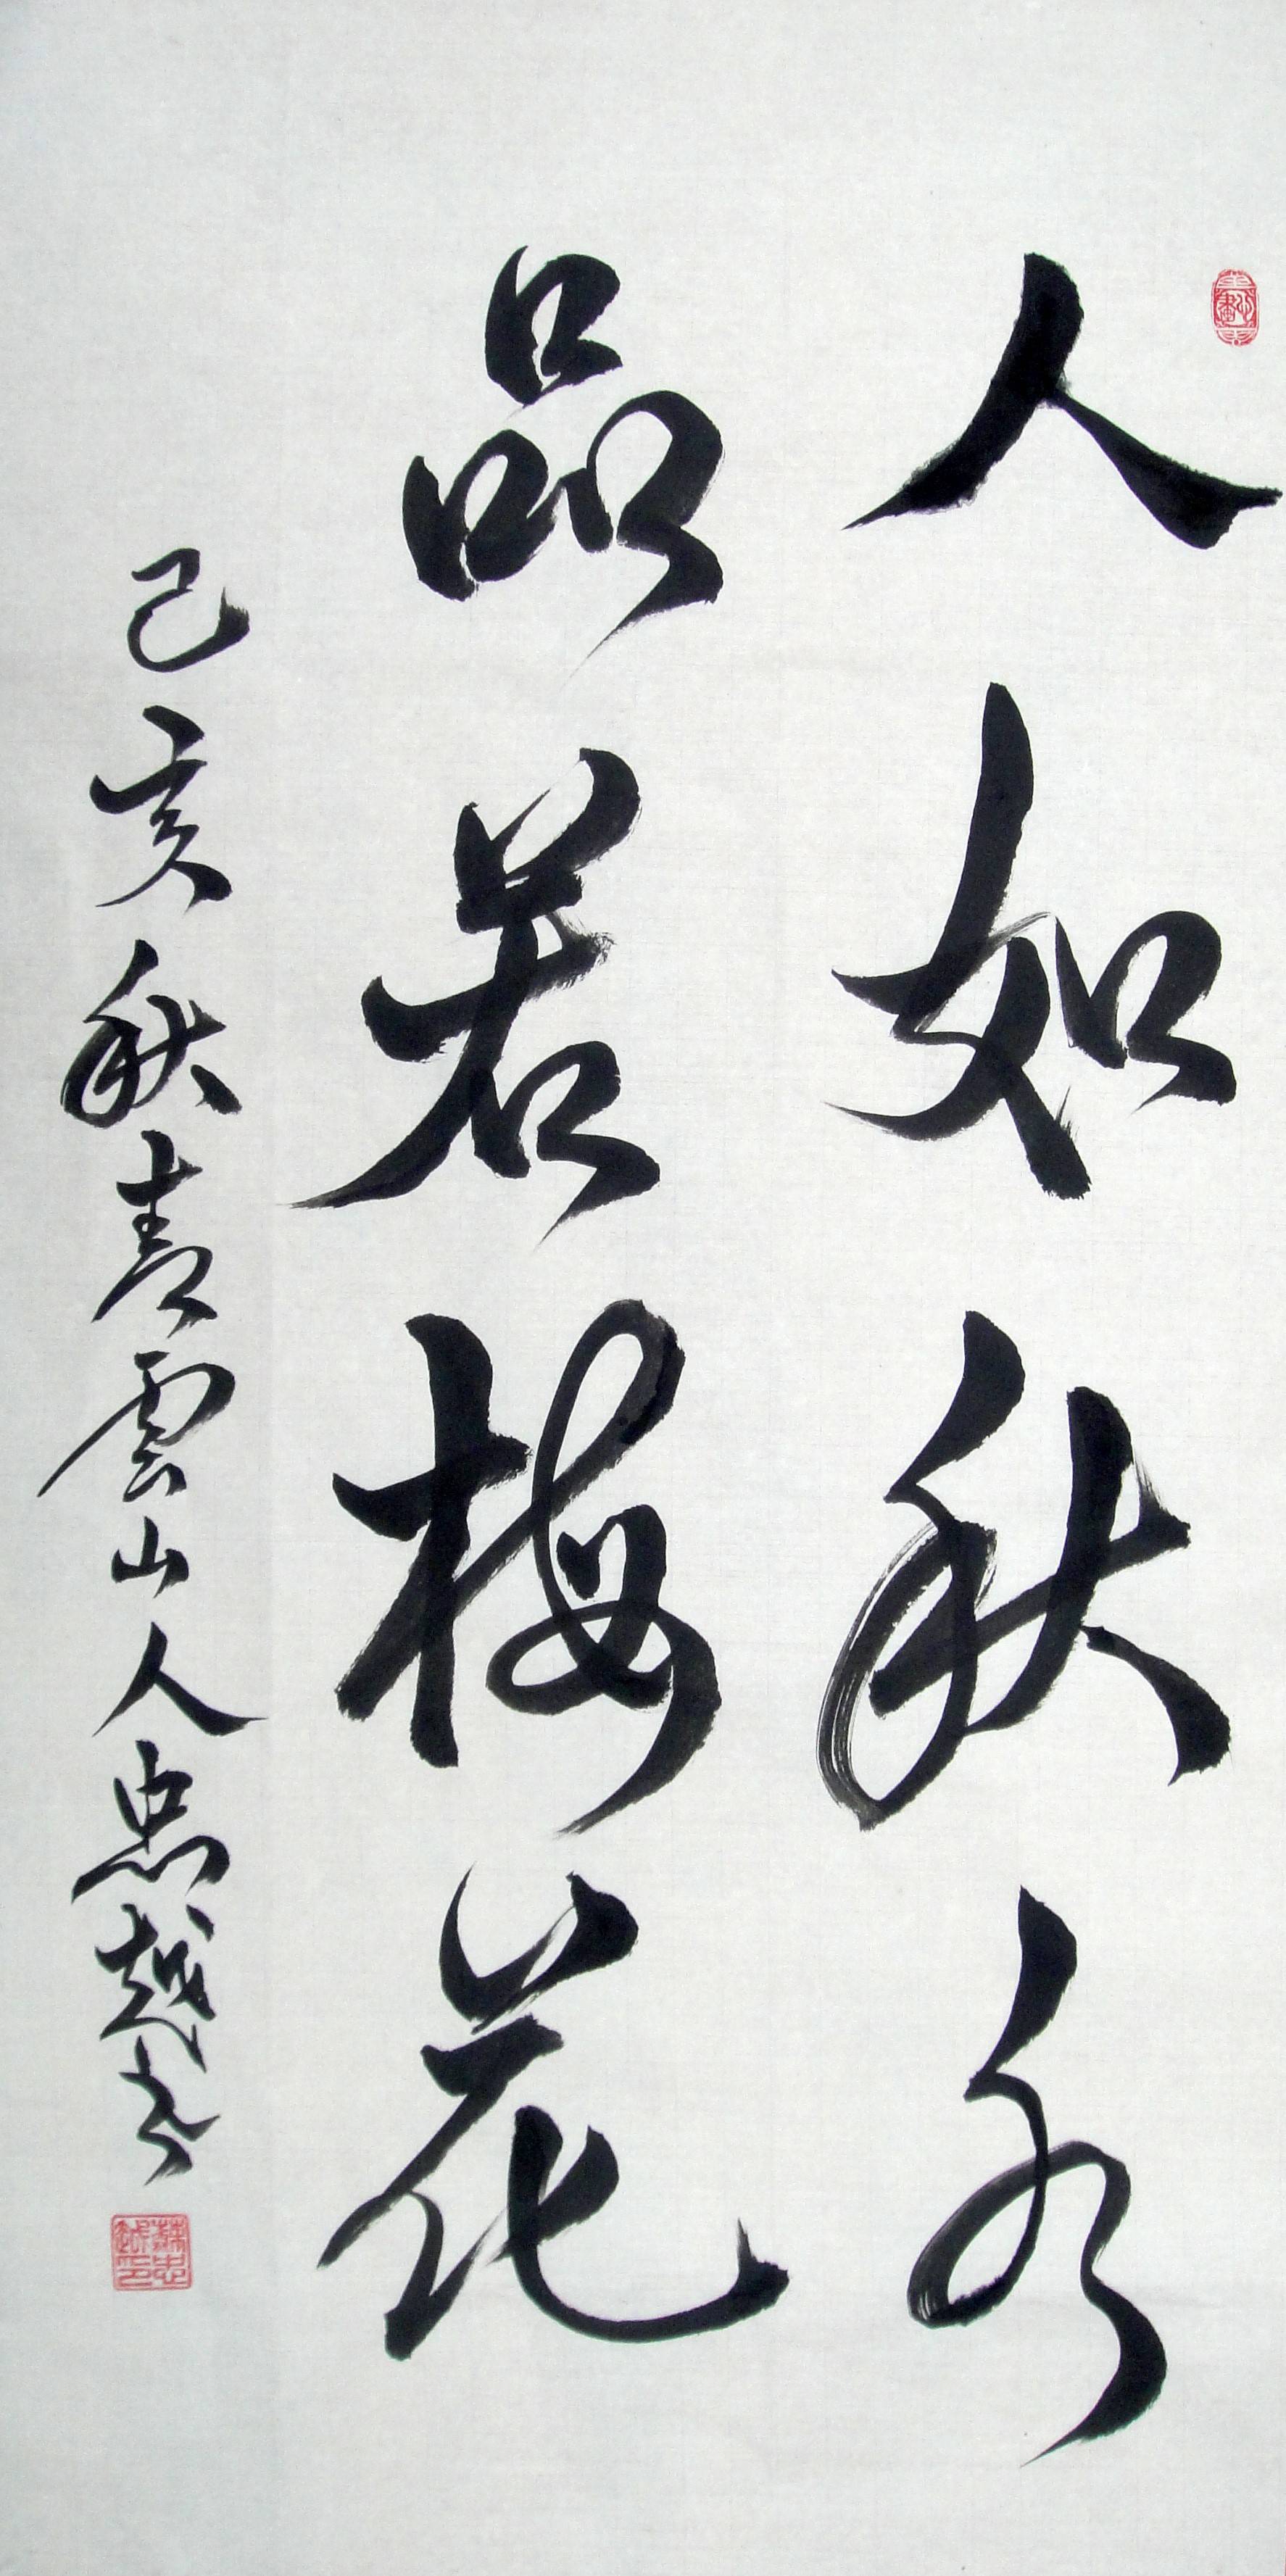 人如秋水
品若梅花
己亥秋青雲山人忠越书